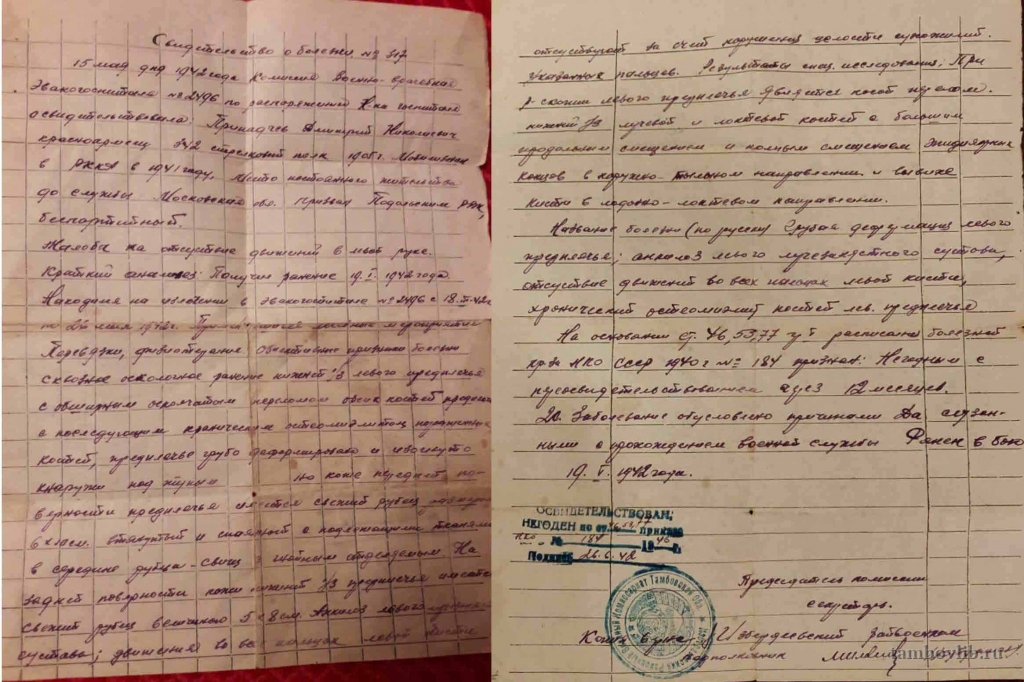 Свидетельство о болезни № 317
15 мая дня 1942 года Комиссия Военно-врачебная
Эвакогоспиталя № 2496 по распоряжению Н-ка госпиталя
освидетельствовала: Дмитрий Николаевич
красноармеец 342 стрелковый полк 1905 г. Мобилизован
в РККА в 1941 году, Место постоянного жительства
до службы Московская обл. Призван Подольским РВК,
беспартийный.
Жалобы на отсутствие движений в левой руке.
Краткий анамнез: Получил ранение 19.I.1942 года.
Находился на излечении в Эвакогоспитале № 2496 с 18.
по мая 1942 г.
Перевязки, физиотерапия Объективные признаки болезни
сквозное осколочное ранение нижней 1/3 левого предплечья
с обширным оскольчатым переломом обеих костей
с последующим хроническим остеомиелитом
костей, предплечье грубо деформировано и изогнуто
кнаружи под на коже передней по-
верхности предплечья имеется свежий рубец
6х см. втянутый и спаянный с подлежащими тканями
в середине рубца-свищ с гнойным отделяемым На
задней поверхности кожи нижней 1/3 предплечья имеется
свежий рубец величиной 5х8 см. Анкилоз левого
сустава; движения во всех пальцах левой кисти
отсутствуют за счет нарушения целости сухожилий
указанных пальцев. Результаты спец. исследования; При
R-скопии левого предплечья имеется перелом
нижней 1/3 лучевой и локтевой костей с большим
продольным смещением и полным смещением
концов в наружно-тыльном направлении и вывихе
кисти в ладонно-локтевом направлении.
Название болезни (по русски) Грубая деформация левого
предплечья; анкилоз левого лучезапястного сустава,
отсутствие движений во всех пальцах левой кисти,
хронический остеомиелит костей лев. предплечья
На основании ст. 46, 53, 77 гр I расписания болезней
пр-за НКО СССР 1940 г № 184 признан: Негодным с
переосвидетельствованием через 12 месяцев.
20. Заболевание обусловлено причинами Да связан-
ными с прохождением военной службы Ранен в бою
19.I.1942 года.
ОСВИДЕТЕЛЬСТВОВАН,
НЕГОДЕН по ст. приказа
НКО № 184
26.6.42
Председатель комиссии
секретарь
Копия верна
подполковник
tambovlib.ru